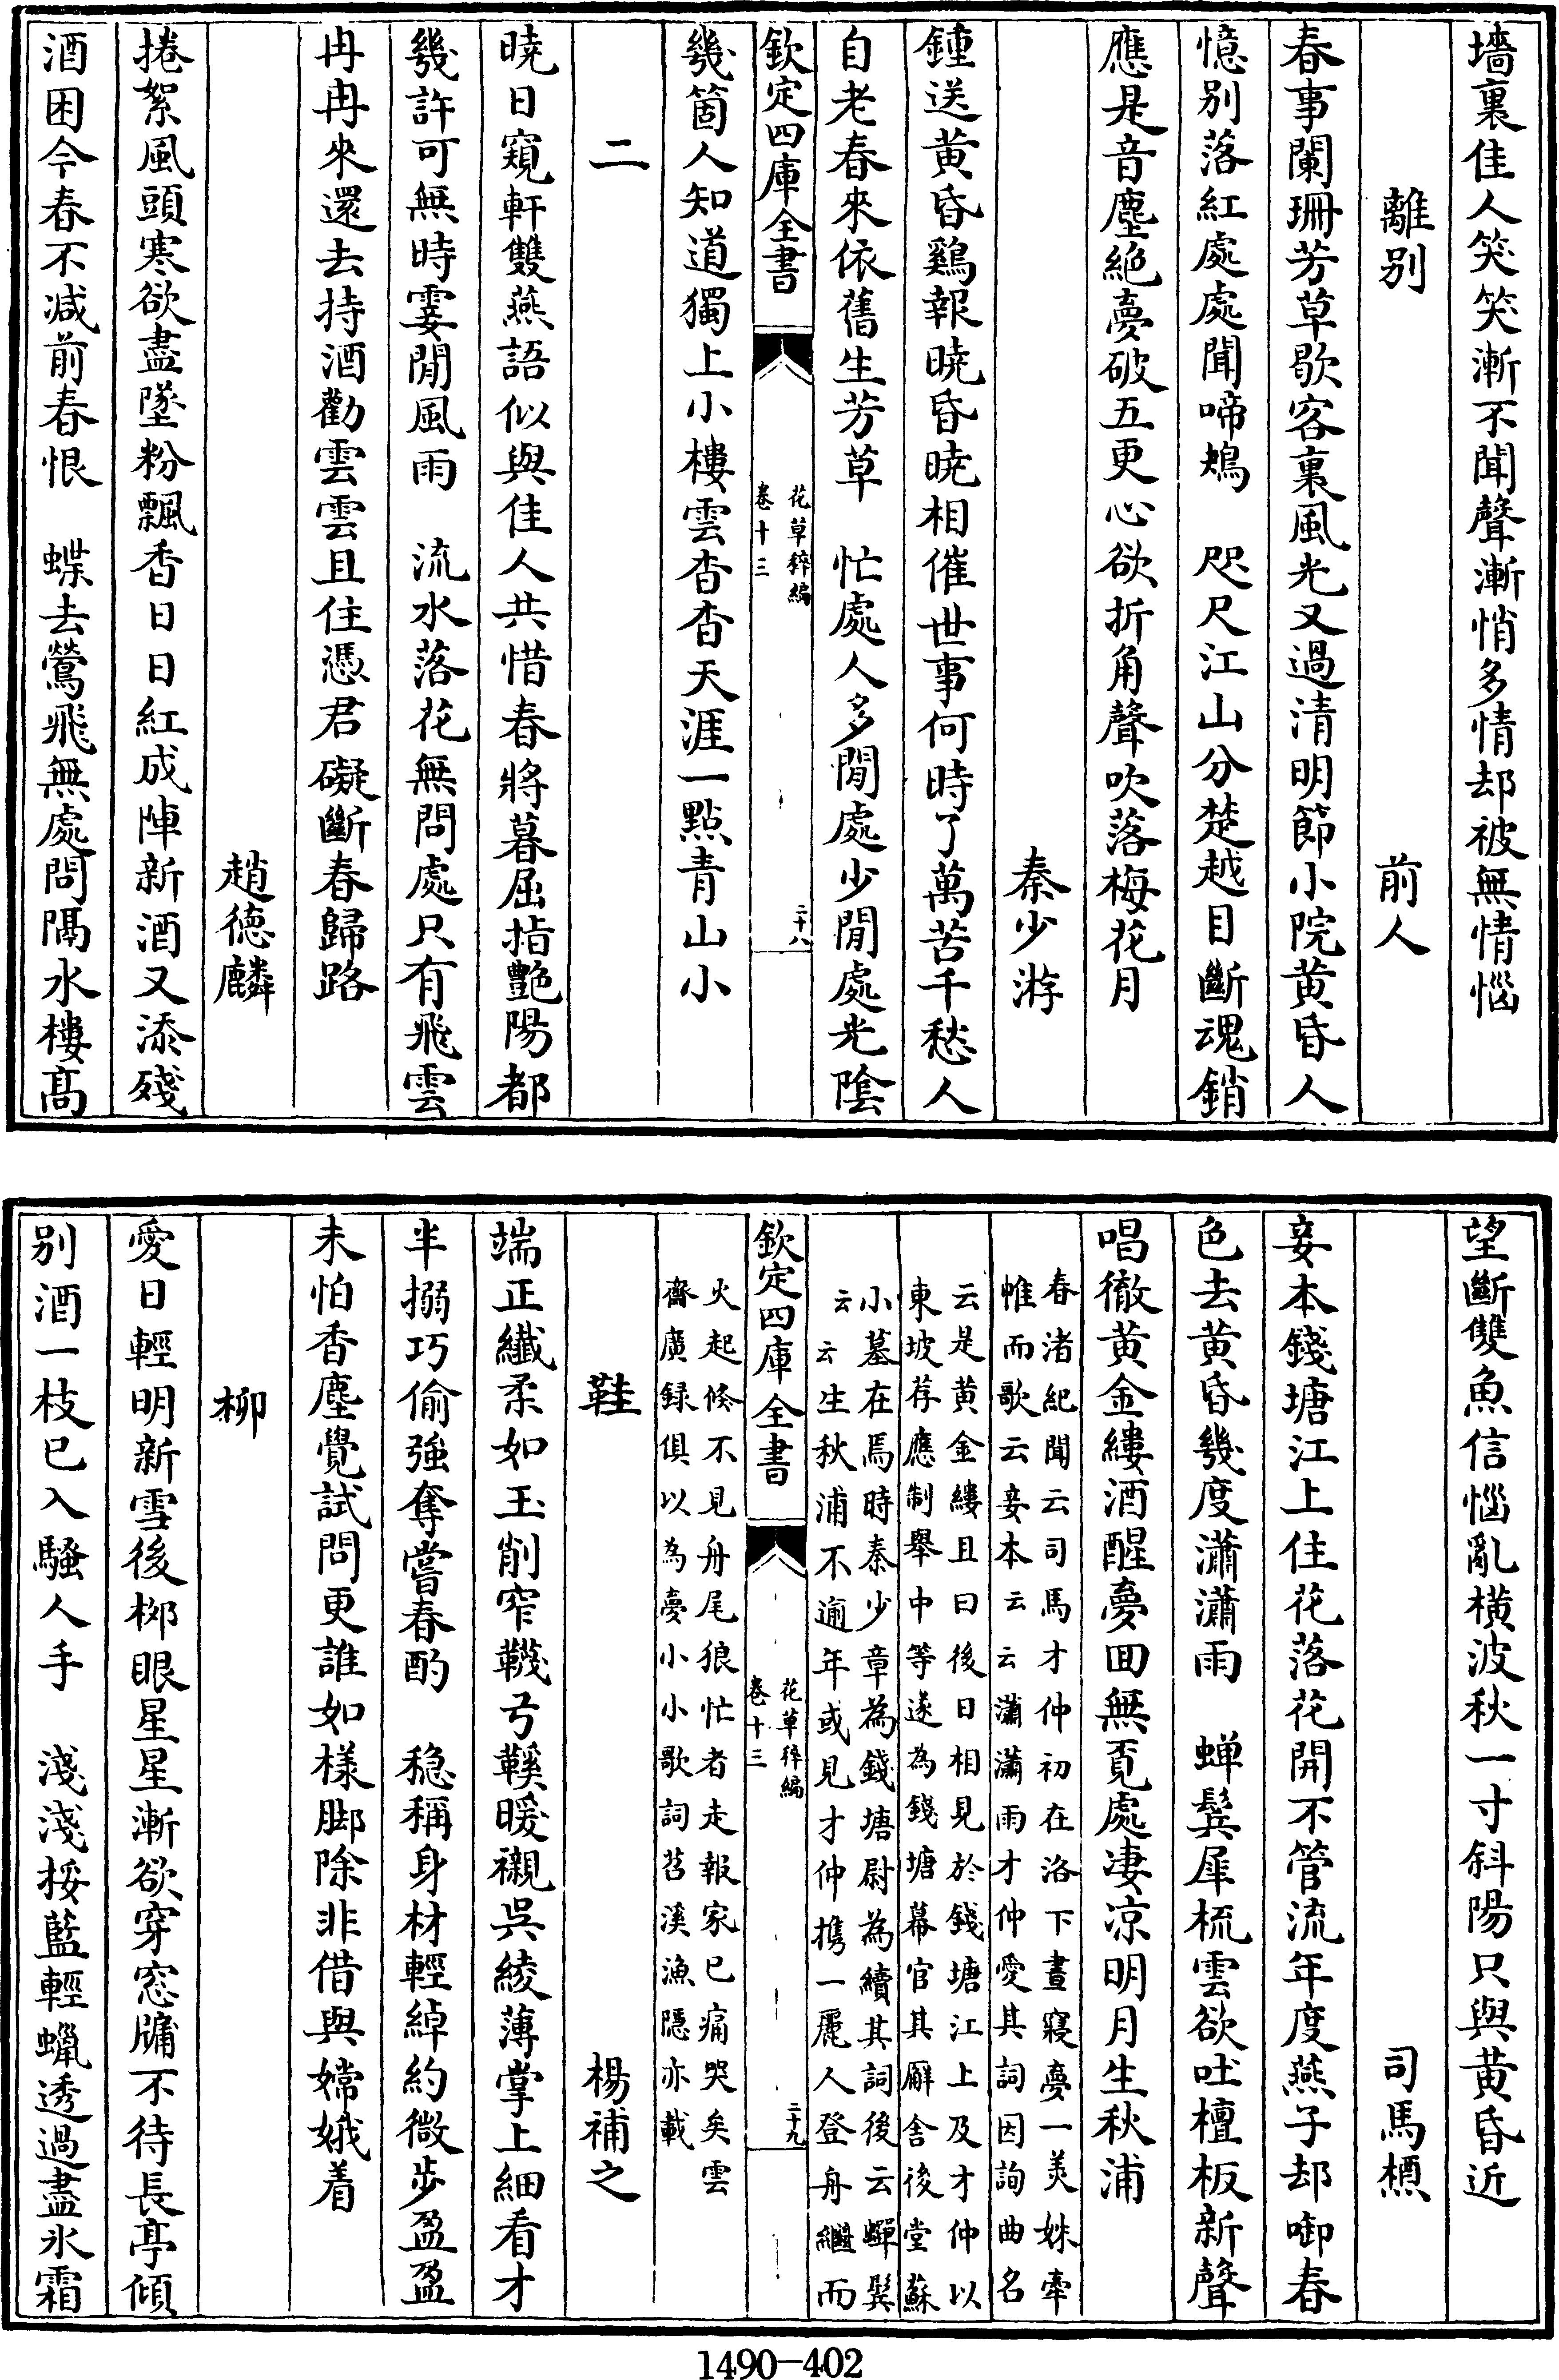 墻裏佳人笑笑漸不聞聲漸悄多情却被無情惱
離别　前人
春事闌珊芳草歇客裏風光又過清明節小院黄昏人
憶别落紅處處聞啼鴂　咫尺江山分楚越目斷魂銷
應是音塵絶夣破五更心欲折角聲吹落梅花月
秦少游
鍾送黄昏鷄報曉昏曉相催世事何時了萬苦千愁人
自老春來依舊生芳草　忙處人多閒處少閒處光隂
欽定四庫全書　花草稡編　卷十三　二十八
幾箇人知道獨上小樓雲杳杳天涯一點青山小
二
曉日窺軒雙燕語似與佳人共惜春將暮屈指艶陽都
幾許可無時霎閒風雨　流水落花無問處只有飛雲
冉冉來還去持酒勸雲雲且住憑君礙斷春歸路
趙德麟
捲絮風頭寒欲盡墜粉飄香日日紅成陣新酒又添殘
酒困今春不减前春恨　蝶去鶯飛無處問隔水樓髙
望斷雙魚信惱亂横波秋一寸斜陽只與黄昏近
司馬槱
妾本錢塘江上住花落花開不管流年度燕子却啣春
色去黄昏幾度瀟瀟雨　蟬鬂犀梳雲欲吐檀板新聲
唱徹黄金縷酒醒夢囬無覔處凄凉明月生秋浦
春渚紀聞云司馬才仲初在洛下晝寢夢一美姝牽
帷而歌云妾本云云瀟瀟雨才仲愛其詞因詢曲名
云是黄金縷且曰後日相見於錢塘江上及才仲以
東坡荐應制舉中等遂為錢塘幕官其廨舍後堂蘇
小墓在焉時秦少章為錢塘尉為續其詞後云蟬鬂
云云生秋浦不逾年或見才仲擕一麗人登舟繼而
欽定四庫全書　花草稡編　卷十三　二十九
火起倐不見舟尾狼忙者走報家已痛哭矣雲
齋廣録俱以為夢小小歌詞苕溪漁隱亦載
鞋　楊補之
端正纎柔如玉削窄韈弓鞵暖襯吳綾薄掌上細看才
半搦巧偷強奪嘗春酌　稳稱身材輕綽約微步盈盈
未怕香塵覺試問更誰如様脚除非借與嫦娥着
柳
愛日輕明新雪後栁眼星星漸欲穿窓牖不待長亭傾
别酒一枝已入騷人手　淺淺挼藍輕蠟透過盡氷霜
1490-402